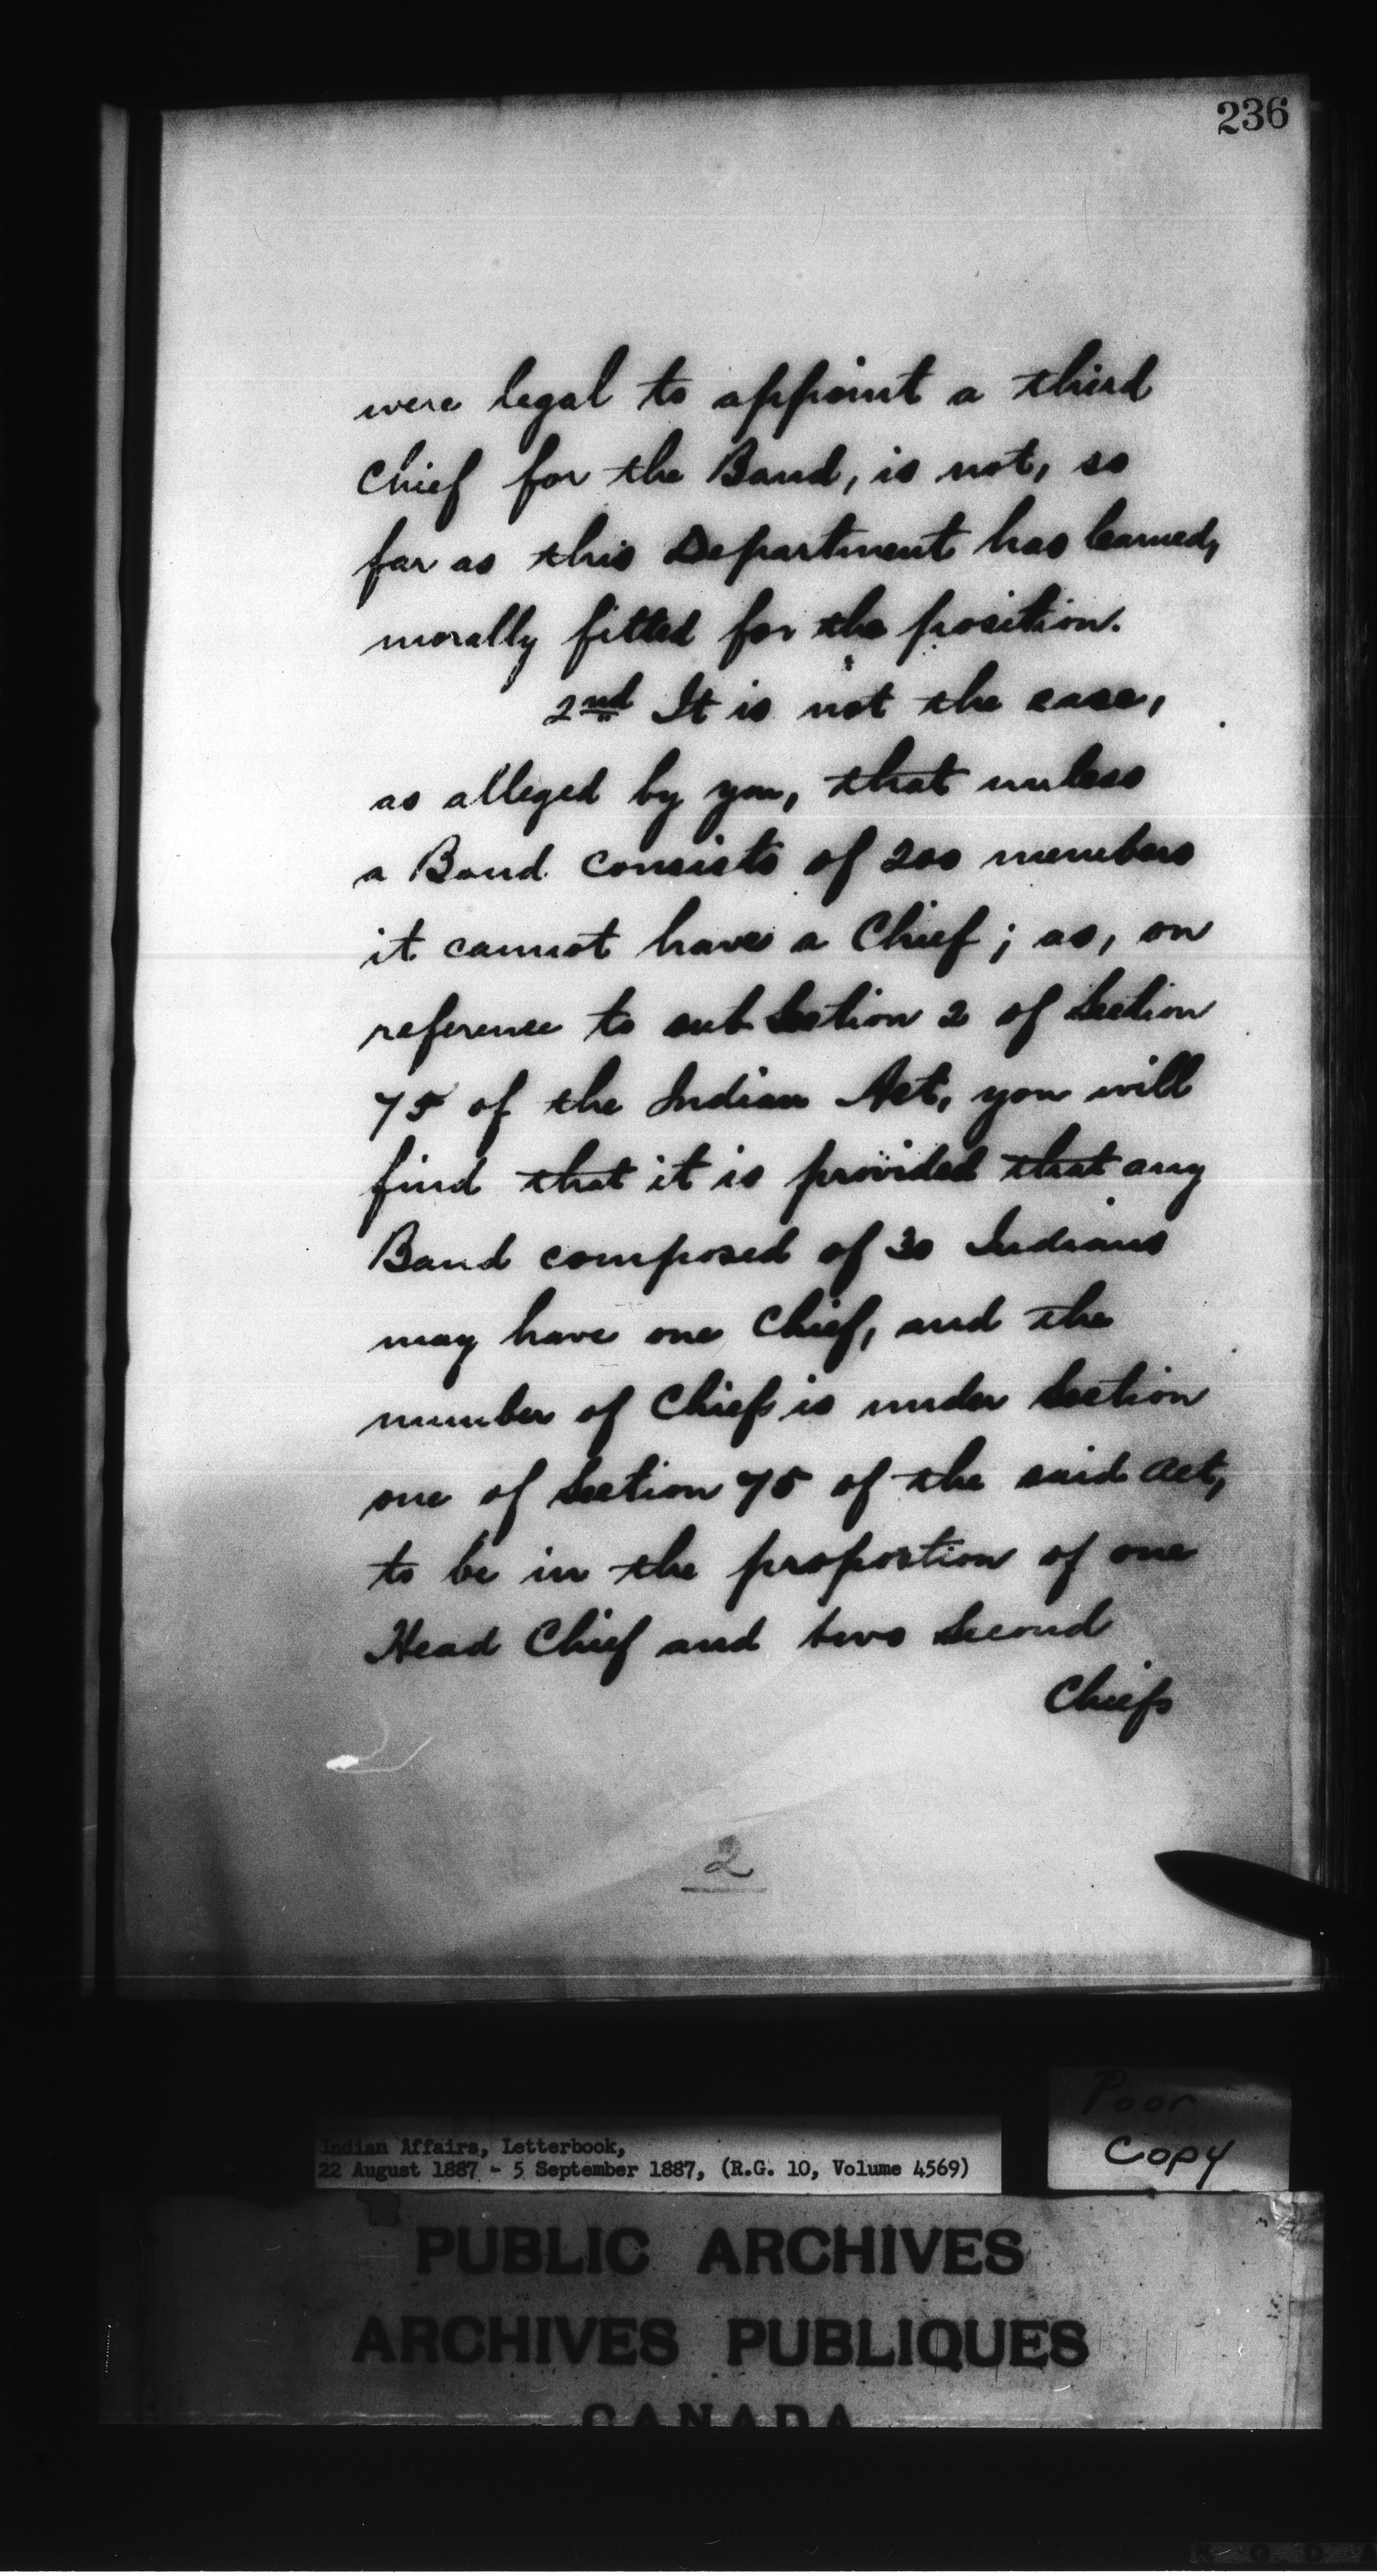 236
were legal to appoint a third
Chief for the Band, is not, so
far as this Department has learned,
morally fitted for the position.
2nd It is not the case,
as alleged by you, that unless
a Band consists of 200 members
it cannot have a Chief; as, on
reference to sub Section 2 of Section
75 of the Indian Act, you will
find that it is provided that any
Band composed of 30 Indians
may have one Chief, and the
number of Chiefs is under Section
one of Section 75 of the said Act,
to be in the proportion of one
Head Chief and two Second
Chiefs
2
Indian Affairs, Letterbook,
22 August 1887 - 5 September 1887, (R.G. 10, Volume 4569)
Poor
Copy
PUBLIC ARCHIVES
ARCHIVES PUBLIQUES
CANADA